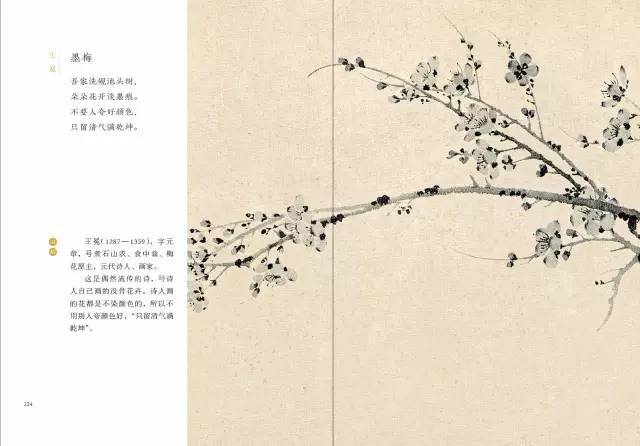 王冕
墨梅
吾家洗砚池头树，
朵朵花开淡墨痕。
不要人夸好颜色，
只留清气满乾坤。
王冕（1287—1359），字元
章，号煮石山农、食中翁、梅
花屋主，元代诗人、画家。
这是偶然流传的诗，写诗
人自己画的没骨花卉。诗人画
的花都是不染颜色的，所以不
用别人夸颜色好，“只留清气满
乾坤”。
224